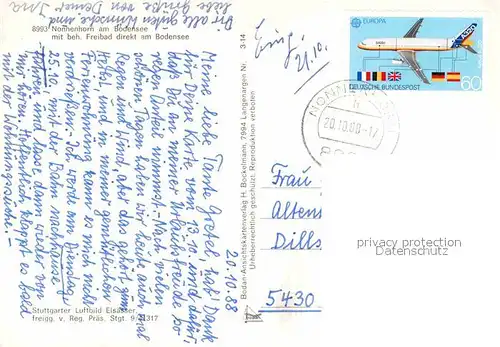 8993 Nonnenhorn am Bodensee
mit beh. Freibad direkt am Bodensee
Dir alle guten Wünsche und
liebe Grüße von Deiner Ina
20.10.88
Meine liebe Tante Gretel, hab' Dank
für Deine Karte vom 13.10. und dafür,
daß Du an meiner Urlaubsfreude so
regen Anteil nimmst. - Nach vielen
Tagen haben wir heute auch mal
und Wind, aber das gehört zum
Herbst. In meiner gemütlichen
Ferienwohnung kann es mich nicht
verdrießen. Ich werde am Dienstag
25.10. mit der Bahn nachhause
fahren und lasse dann wieder von
mir hören. Hoffentlich klappt es bald
mit der Wohnungssuche! -
Stuttgarter Luftbild Elsässer,
freigg. v. Reg. Präs. Stgt. 9/21317
3-14
Bodan-Ansichtskartenverlag H. Bockelmann, 7994 Langenargen Nr.
Urheberrechtlich geschützt. Reproduktion verboten
Eing.
21.10.
EUROPA
DEUTSCHE BUNDESPOST
60
A320
NONNENHORN
20.10.88-17
Frau
Dills
5430
privacy protection
Datenschutz